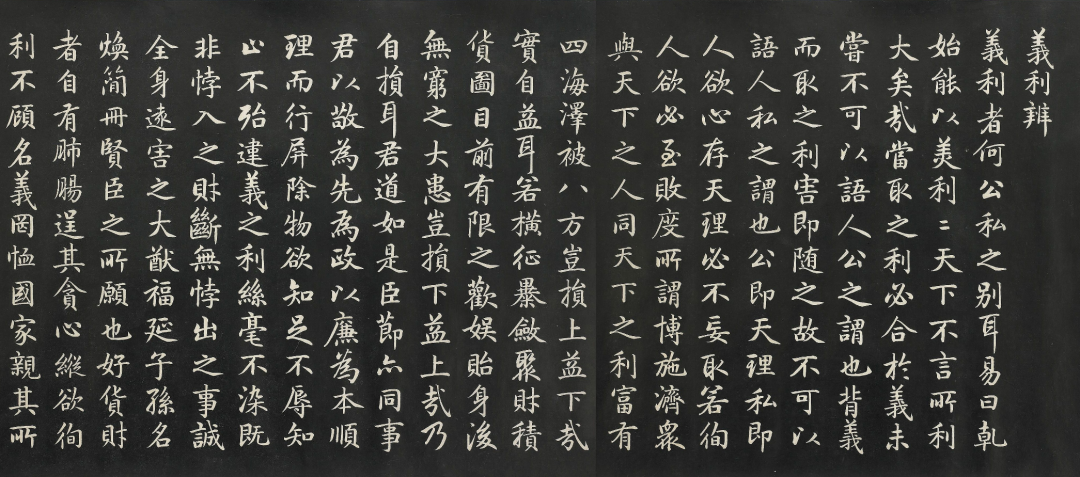 義利辨
義利者何公私之别耳易曰乹
始能以美利〻天下不言所利
大矣㢤當取之利必合於義未
嘗不可以語人公之謂也背義
而取之利害即随之故不可以
語人私之謂也公即天理私即
人欲心存天理必不妄取若徇
人欲必至敗度所謂博施濟衆
與天下之人同天下之利富有
四海澤被八方豈損上益下㢤
實自益耳若橫征暴斂聚財積
貨圖目前有限之歡娛貽身後
無窮之大患豈損下益上㢤乃
自損耳君道如是臣節亦同事
君以敬為先為政以廉為本順
理而行屏除物欲知足不辱知
止不殆違義之利絲毫不染既
非悖入之財斷無悖出之事誠
全身遠害之大猷福延子孫名
煥簡冊賢臣之所願也好貨財
者自有肺腸逞其貪心縱欲徇
利不顧名義罔恤國家親其所